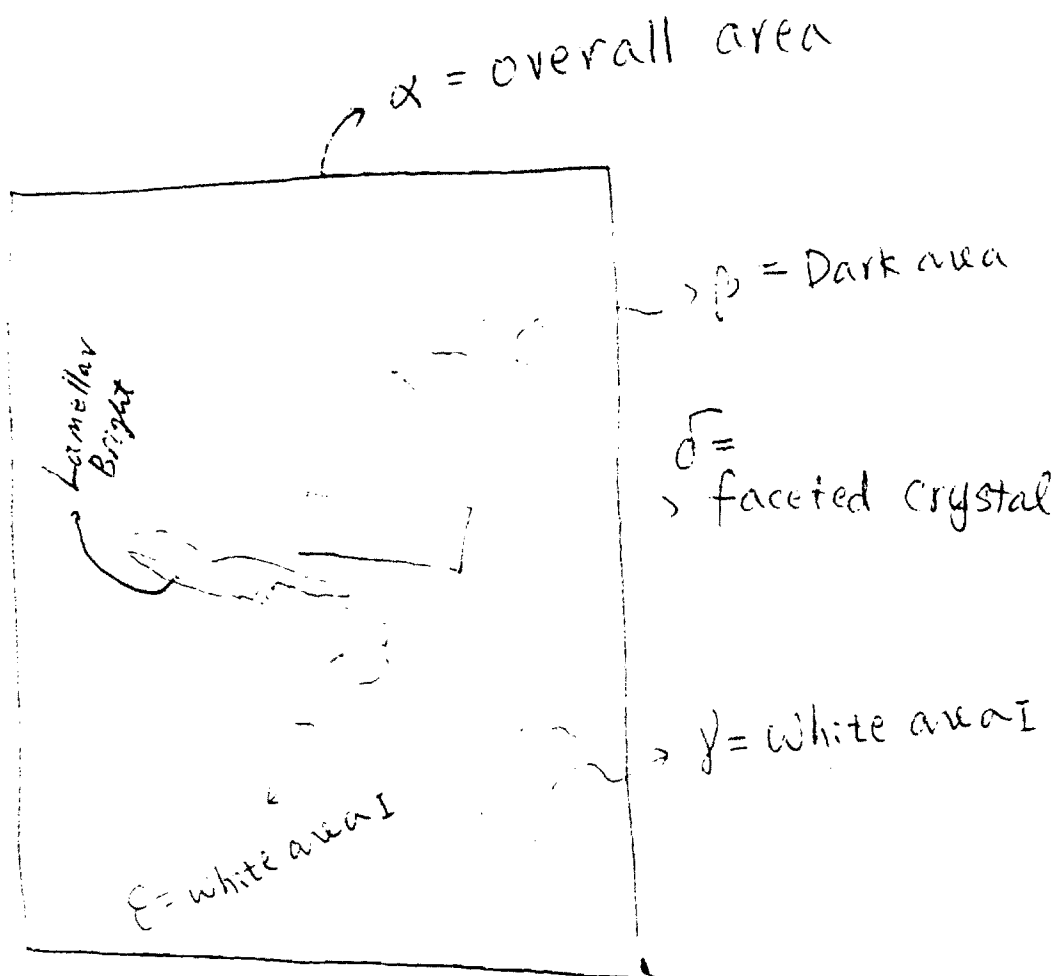 α = overall area
β = Dark area
Lamellar
Bright
δ =
faceted crystal
γ = White area I
ε = white area I